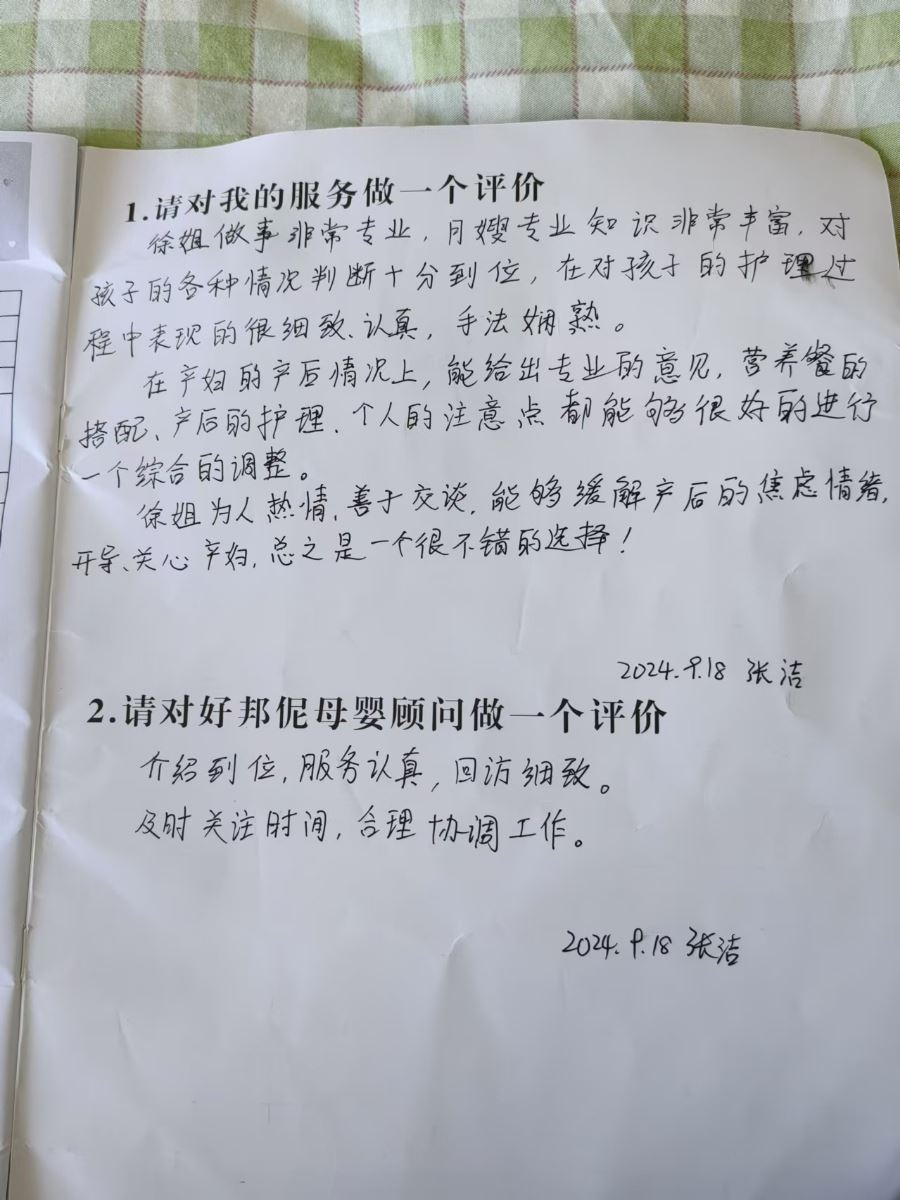 1.请对我的服务做一个评价
徐姐做事非常专业，月嫂专业知识非常丰富，对
孩子的各种情况判断十分到位，在对孩子的护理过
程中表现的很细致、认真，手法娴熟。
在产妇的产后情况上，能给出专业的意见，营养餐的
搭配、产后的护理、个人的注意点都能够很好的进行
一个综合的调整。
徐姐为人热情，善于交谈，能够缓解产后的焦虑情绪，
开导、关心产妇，总之是一个很不错的选择！
2024.9.18 张洁
2.请对好邦伲母婴顾问做一个评价
介绍到位，服务认真，回访细致。
及时关注时间，合理协调工作。
2024.9.18 张洁